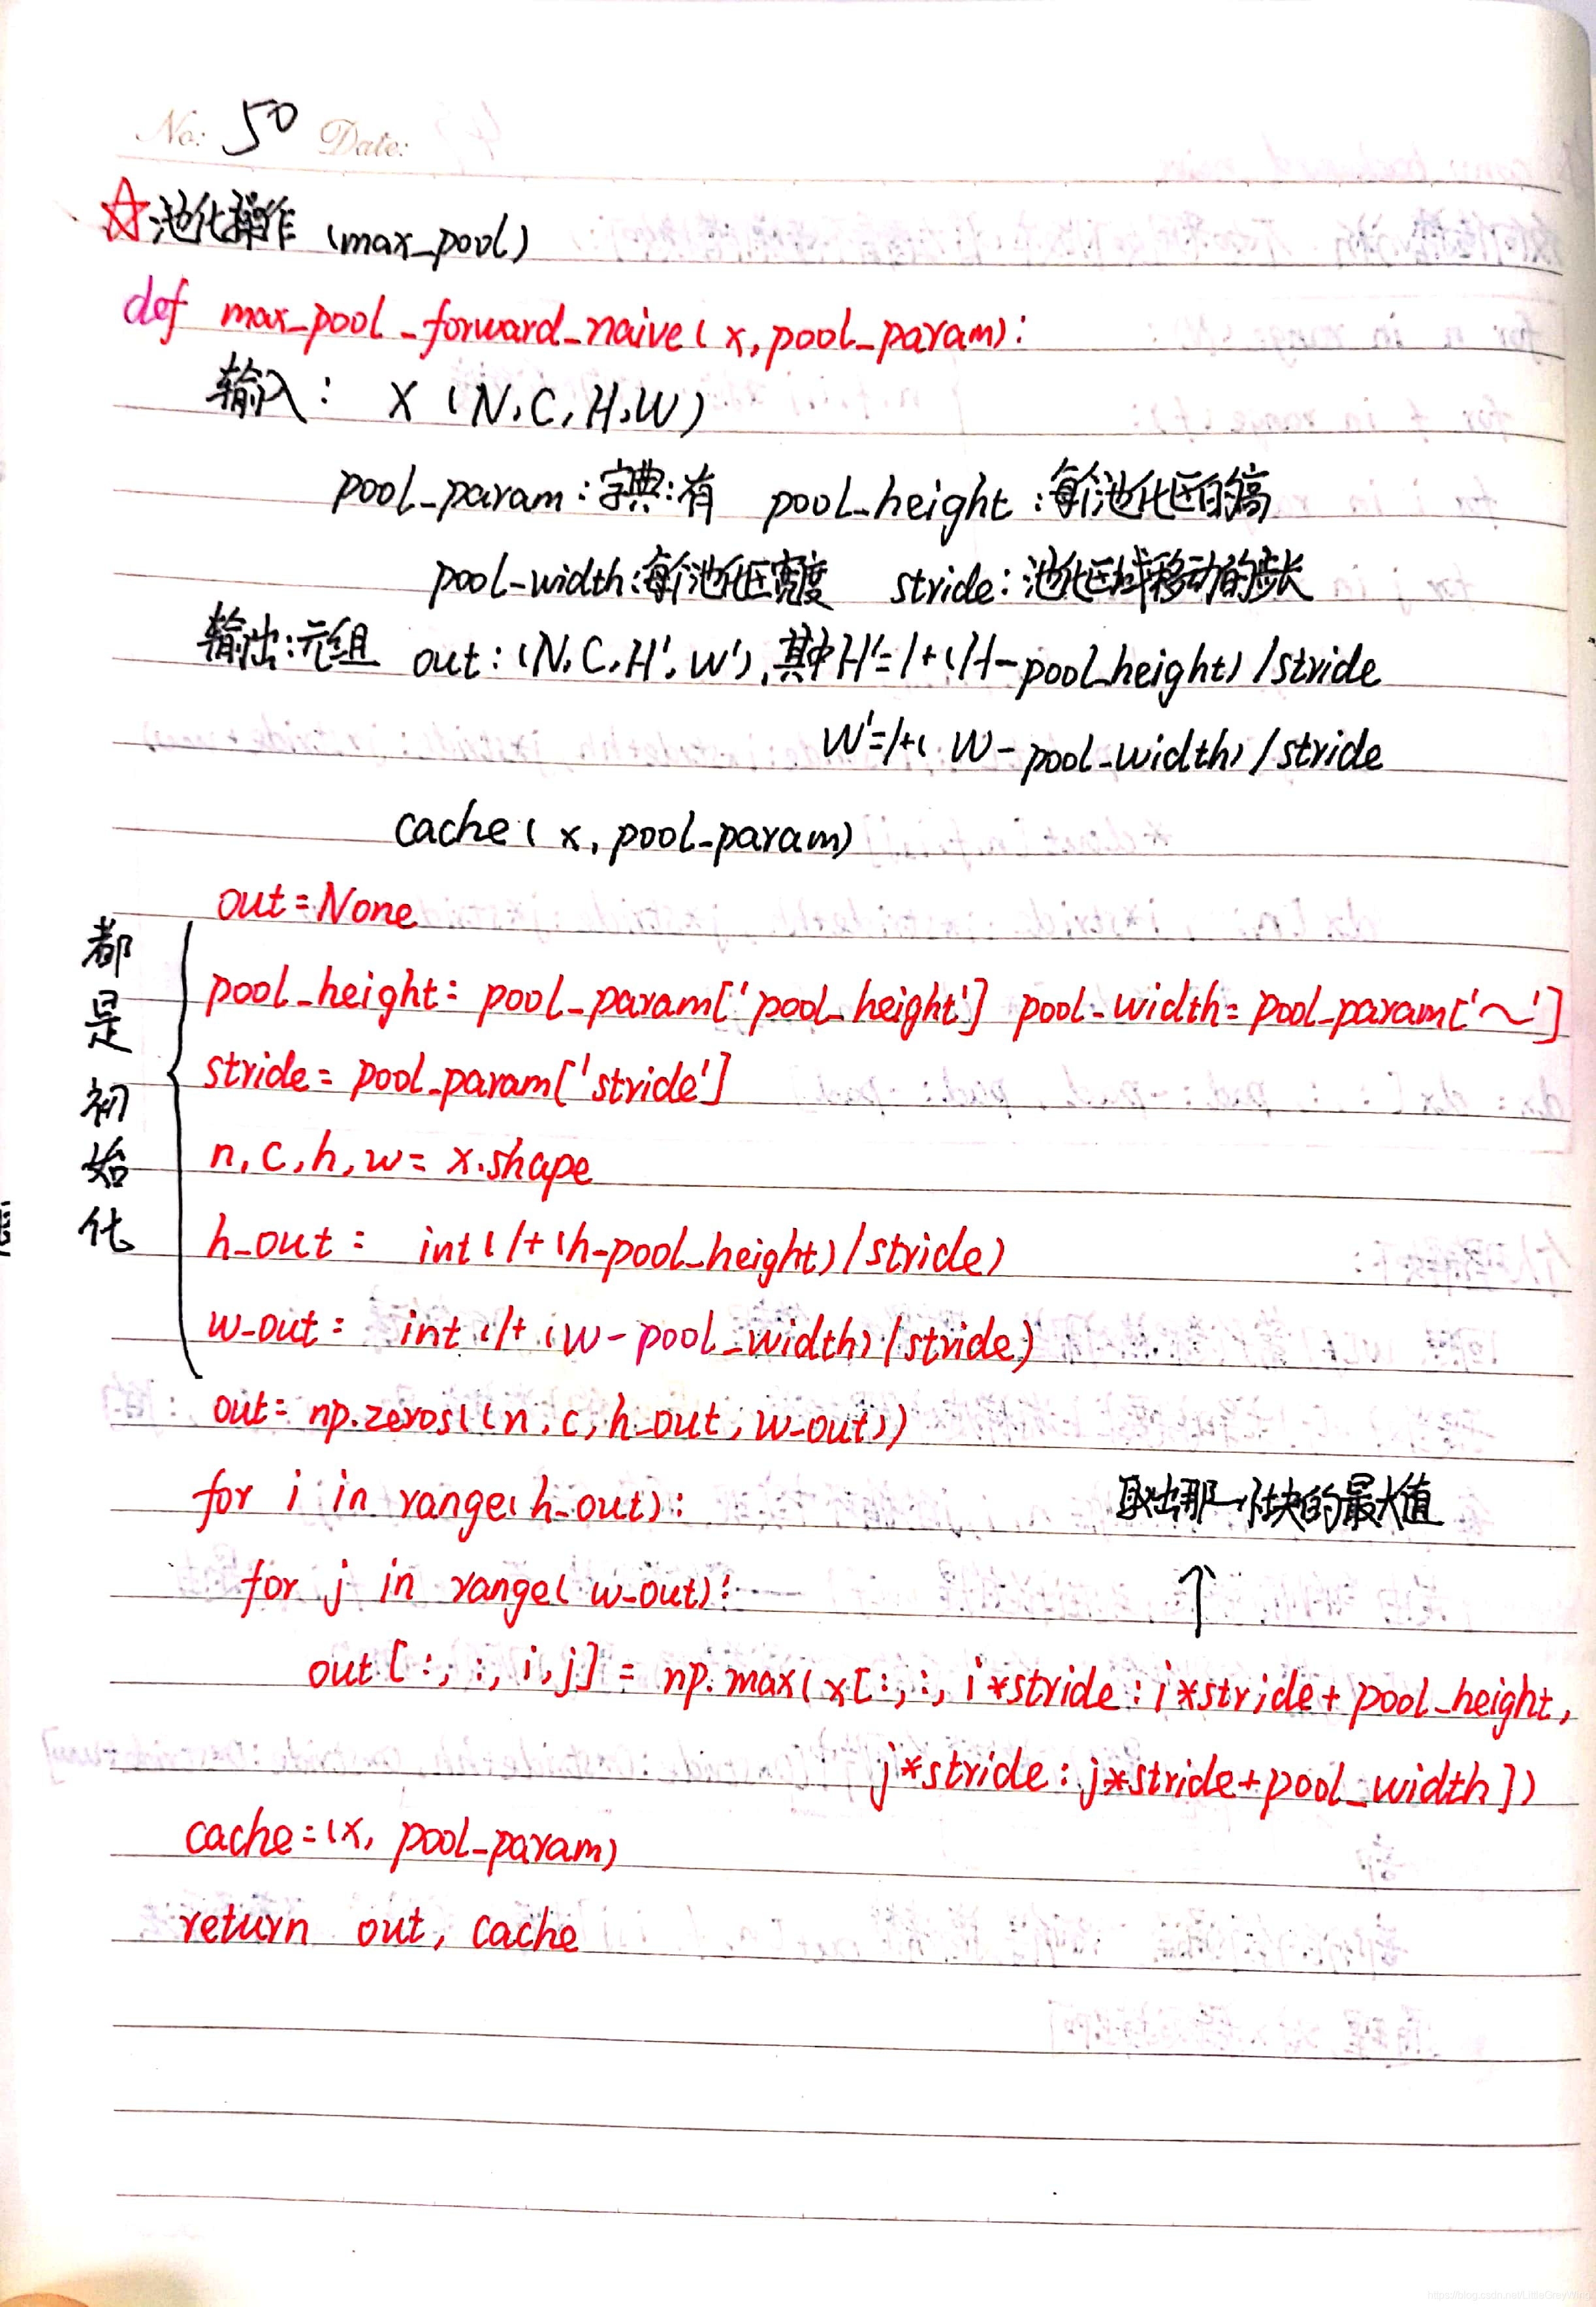 No: 50 Date:
☆池化操作 (max_pool)
def max_pool_forward_naive(x, pool_param):
输入: X (N, C, H, W)
pool_param:字典:有 pool_height:每个池化区的高
pool_width:每个池化区宽度 stride:池化区域移动的步长
输出:元组 out:(N, C, H', W'),其中H'=1+(H-pool_height)/stride
W'=1+(W-pool_width)/stride
cache(x, pool_param)
out=None
pool_height= pool_param['pool_height'] pool_width= pool_param['~']
stride= pool_param['stride']
n, c, h, w= x.shape
h_out= int(1+(h-pool_height)/stride)
w_out= int(1+(w-pool_width)/stride)
都是初始化
out= np.zeros((n, c, h_out, w_out))
for i in range(h_out):
取出那一小块的最大值
for j in range(w_out):
↑
out[:, :, i, j] = np.max(x[:, :, i*stride:i*stride+pool_height,
j*stride:j*stride+pool_width])
cache=(x, pool_param)
return out, cache